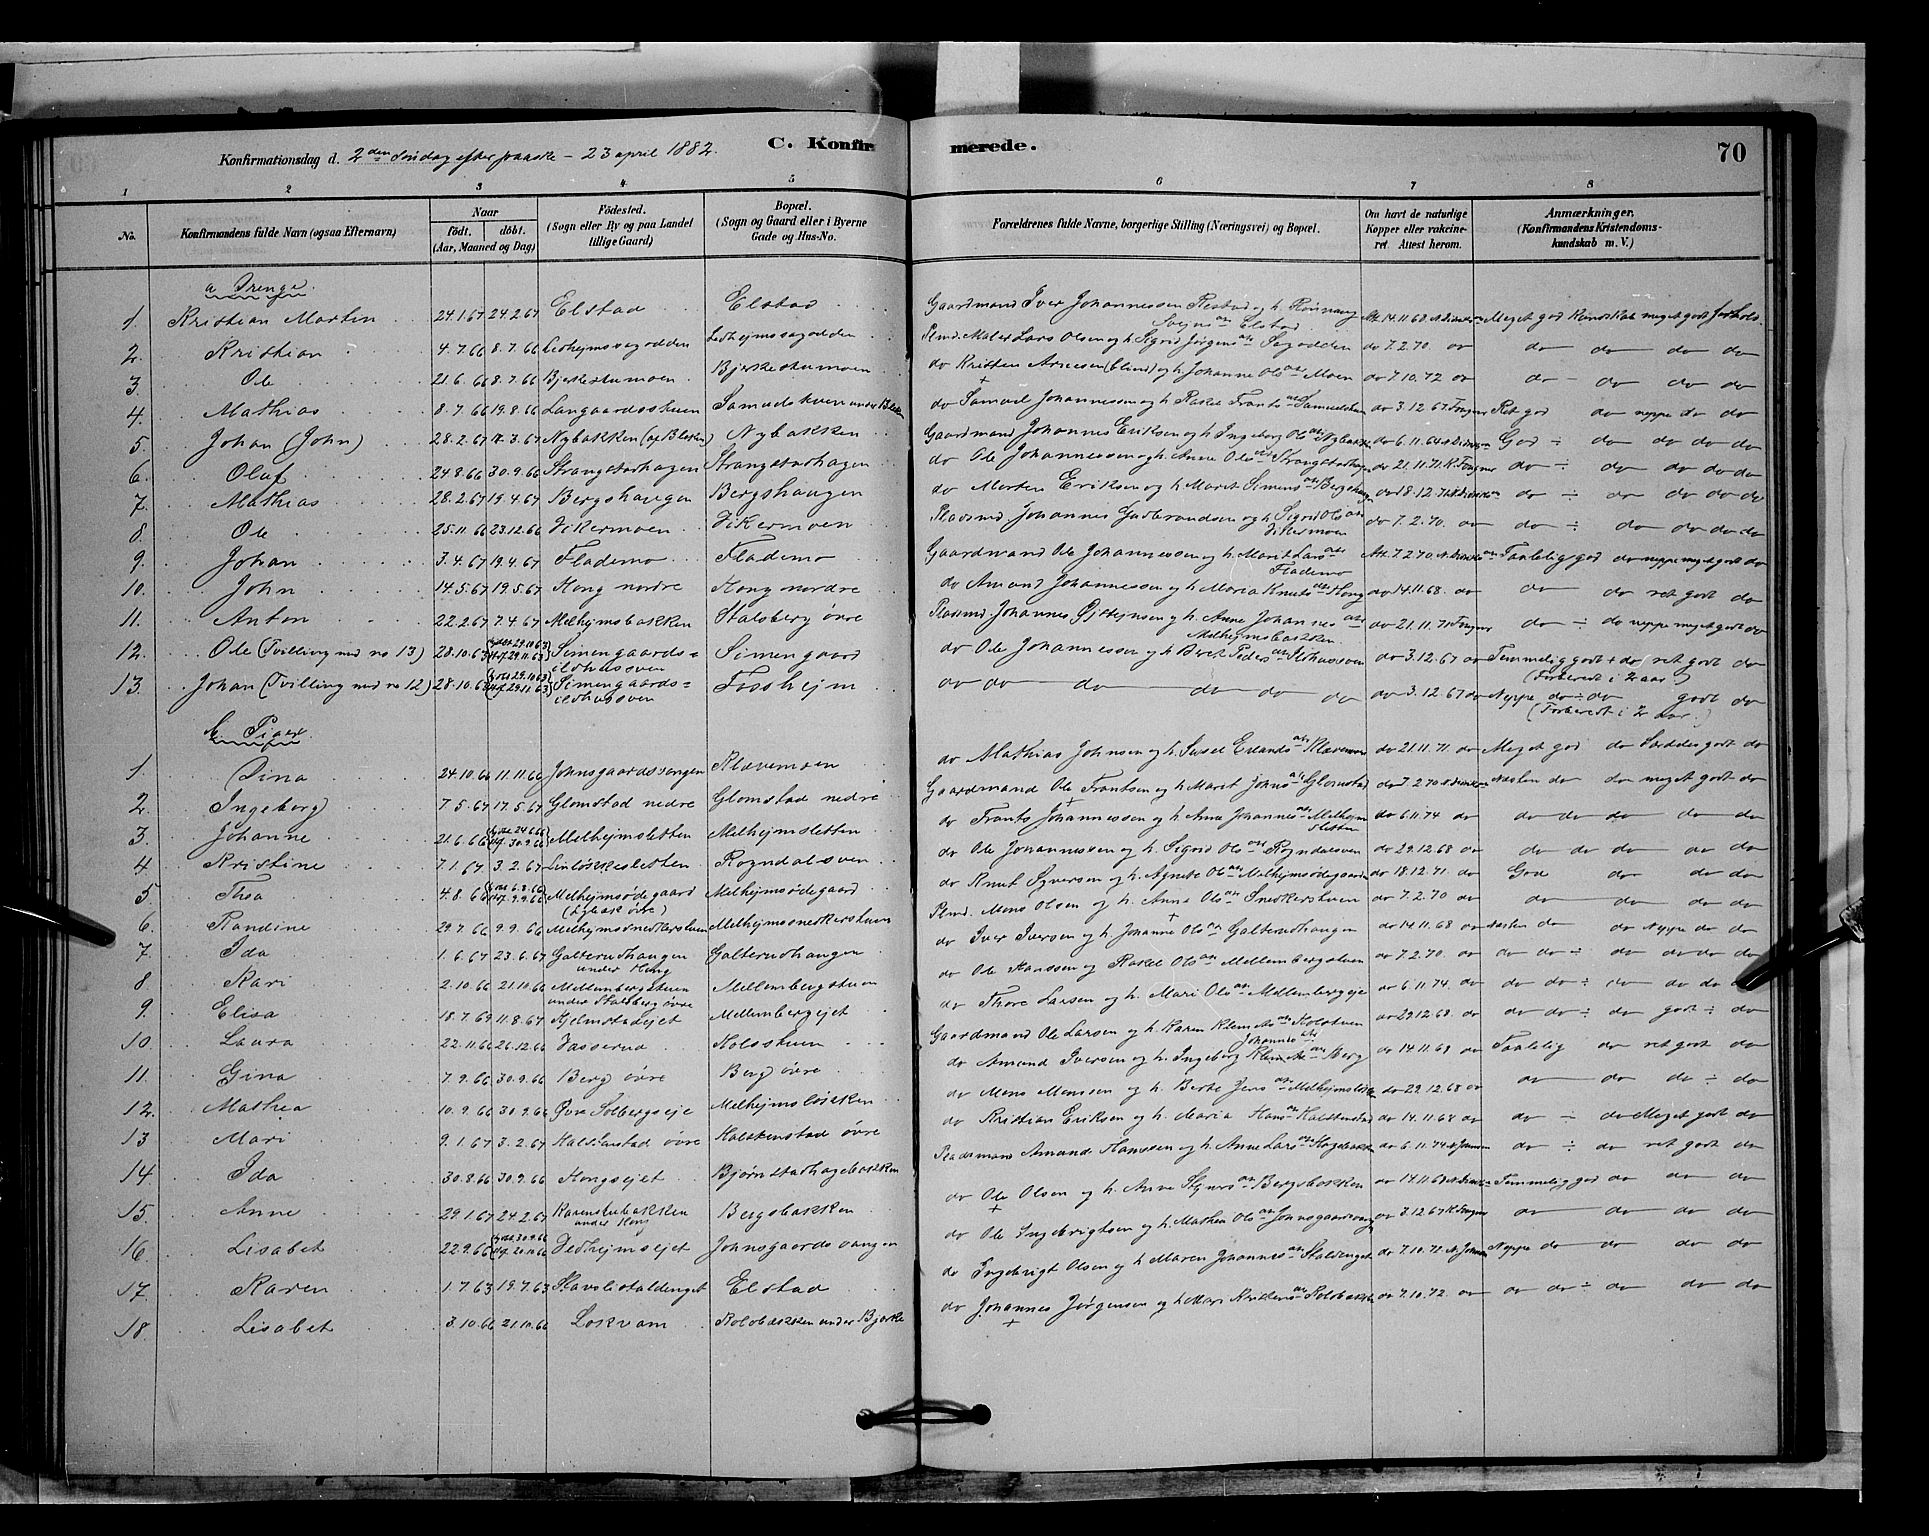 Konfirmationsdag d. 2den Søndag efter paaske - 23 april 1882.
C. Konfirmerede.
70
1 2 3 4 5 6 7 8
No.
Konfirmandens fulde Navn (ogsaa Efternavn)
Naar
födt. döbt.
(Aar, Maaned og Dag)
Födested.
(Sogn eller By og paa Landet
tillige Gaard)
Bopæl.
(Sogn og Gaard eller i Byerne
Gade og Hns-No.
Forældrenes fulde Navne, borgerlige Stilling (Næringsvei) og Bopæl.
Om havt de naturlige
Kopper eller vakcine-
ret Attest herom.
Anmærkninger.
(Konfirmandens Kristendoms-
kundskab m. V.)
a. Drenge.
1. Kristian Martin 24.1.67 24.2.67 Elstad Elstad Gaardmand Iver Johannessen og h. Elstad At. 14.11.68 Meget god Kundskab meget godt forhold
2. Kristian 4.7.66 8.7.66 Lars Olsen og h. Sigrid Jørgens do 7.2.70. do do do do do
3. Ole 21.6.66 8.7.66 Bjerkestumoen Bjerkestumoen do Kristen Arnesen (blind) og h. Johanne Ols Moen do 7.10.72 do do do do do
4. Mathias 8.7.66 19.8.66 Langaardsstuen do Samuel Johannessen og h. Rakel Frants do 3.12.67 Ret god do neppe do do
5. Johan (John) 28.2.67 17.3.67 Nybakken (af Bleken) Nybakken Gaardmand Johannes Eriksen og h. Ingeborg Ols Nybakken do 6.11.64 God ÷ do do do do
6. Oluf 24.8.66 30.9.66 Strangstadhagen Strangstadhagen do Ole Johannessen og h. Anne Ols Strangstadhagen do 21.11.71. do ÷ do do do do
7. Mathias 28.2.67 19.4.67 Bergshaugen Bergshaugen do Morten Eriksen og h. Maret Simens Bergshaugen do 18.12.71 do ÷ do do do do
8. Ole 25.11.66 23.12.66 Vikermoen Vikermoen Pladsmd Johannes Gudbrandsen og h. Sigrid Ols Vikermoen do 7.2.70. do do ÷ do do do do
9. Johan 3.4.67 19.4.67 Flademo Flademo Gaardmand Ole Johannessen og h. Marit Lars Flademo At. 7.2.70 Taalelig god do neppe meget godt do
10. John 14.5.67 19.5.67 Hong nordre Hong nordre do Amund Johannessen og h. Maria Knuts Hong do 14.11.68. do do do ret godt do
11. Anton 22.2.67 7.4.67 Melhejmsbakken Stalsberg øvre Pladsmd. Johannes Østensen og h. Anne Johannes Melhejmsbakken do 21.11.71 do ÷ do neppe meget godt do
12. Ole (Tvilling med no 13) 28.10.63 29.11.63 Simengaards= ildhussven Simengaard do Ole Johannessen og h. Beret Peders Ildhussven do 3.12.67 do Temmelig godt + do ret godt do
(Forberedt i 2 aar)
13. Johan (Tvilling med no 12) 28.10.63 29.11.63 Simengaards= ildhussven Fosshejm do do do do do do do 3.12.67 do Neppe do ÷ do godt do
(Forberedt i 2 aar.)
b. Piger.
1. Dina 24.10.66 11.11.66 Johnsgaardsvangen Klævemoen do Mathias Johnsen og h. Sissel Erlands Klævemoen do 21.11.71. do Meget god do Særdeles godt do
2. Ingeborg 7.5.67 17.5.67 Glomstad nedre Glomstad nedre Gaardmand Ole Frantsen og h. Maret Johns Glomstad do 7.2.70 Næsten do do meget godt do
3. Johanne 21.6.66 30.9.66 Melhejmsletten Melhejmsletten do Frants Johannessen og h. Anne Johannes Melhejmsletten do 6.11.74 do do do do do do
4 Kristine 7.1.67 3.2.67 Linløkkesletten Rogndalsven do Ole Johannessen og h. Sigrid Ols Rogndalsven do 29.12.68 do do do do do do
5 Thea 4.8.66 9.9.66 Melhejmsødegaard Melhejmsødegaard do Knut Syversen og h. Agnete Ols Melhejmsødegaard do 18.12.71. do God do do do
6. Randine 29.7.66 9.9.66 Melhejmsnedkerstuen Melhejmsnedkerstuen Plmd. Mons Olsen og h. Anne Ols Snedkerstuen do 7.2.70 do do do do do
7. Ida 1.6.67 23.6.67 Galterudhaugen under Hong Galterudhaugen do Iver Iversen og h. Johanne Ols Galterudhaugen do 14.11.68 do Næsten do do Neppe do do
8. Kari 2.10.66 21.10.66 Mellembergstuen under Stalsberg øvre Mellembergstuen do Ole Hanssen og Rakel Ols Mellembergstuen do 7.2.70. do do do ÷ do do do do
9. Elisa 18.7.67 11.8.67 Hjelmstadejet Mellembergejet do Thore Larsen og h. Mari Ols Mellembergeje do 6.11.74. do do do ÷ do do do
10. Laura 22.11.66 26.12.66 Vasserud Holsstuen Gaardmand Ole Larsen og h. Karen Klemets Holstuen do 29.12.68. do do do ÷ do godt ÷ do
11. Gina 7.9.66 30.9.66 Berg øvre Berg øvre do Amund Iversen og h. Ingeborg Johannes Berg do 14.11.68 do Taalelig do ret godt do
12. Mathea 10.9.66 30.9.66 Øvre Solbergseje Melhejmsløkken do Mons Monsen og h. Berte Jens do 29.12.68 do do do do ÷ do
13 Mari 9.1.67 3.2.67 Halstenstad øvre Halstenstad øvre do Kristian Eriksen og h. Maria Hans Halstenstad do 14.11.68 do do ÷ do Meget godt do
14 Ida 30.8.66 30.9.66 Hongsejet Bjørnstadhagebakken Pladsmand Amund Hanssen og h. Anne Lars do 6.11.74 do ÷ do ret godt do
15. Anne 29.1.67 24.2.67 Karenstubakken under Hong Bergsbakken do Ole Olsen og h. Anne Bergsbakken do 14.11.68 Temmelig god do do do
16. Lisabet 22.9.66 Vedhejmsejet Johnsgaardsvangen do Ole Ingebrigtsen og h. Mathea Ols Johnsgaardsvangen do 3.12.67 do do do do
17. Karen 1.7.63 19.7.63 Stavslistaldenget Elstad do Ingebrigt Olsen og h. Maren Johannes Staldenget do 7.10.72 Neppe do do do do
18 Lisabet 3.10.66 21.10.66 Loskvam Kolobakken under Bjerke do Johannes Jørgensen og h. Mari Kolobakken do 7.10.72 do do do ÷ do do do